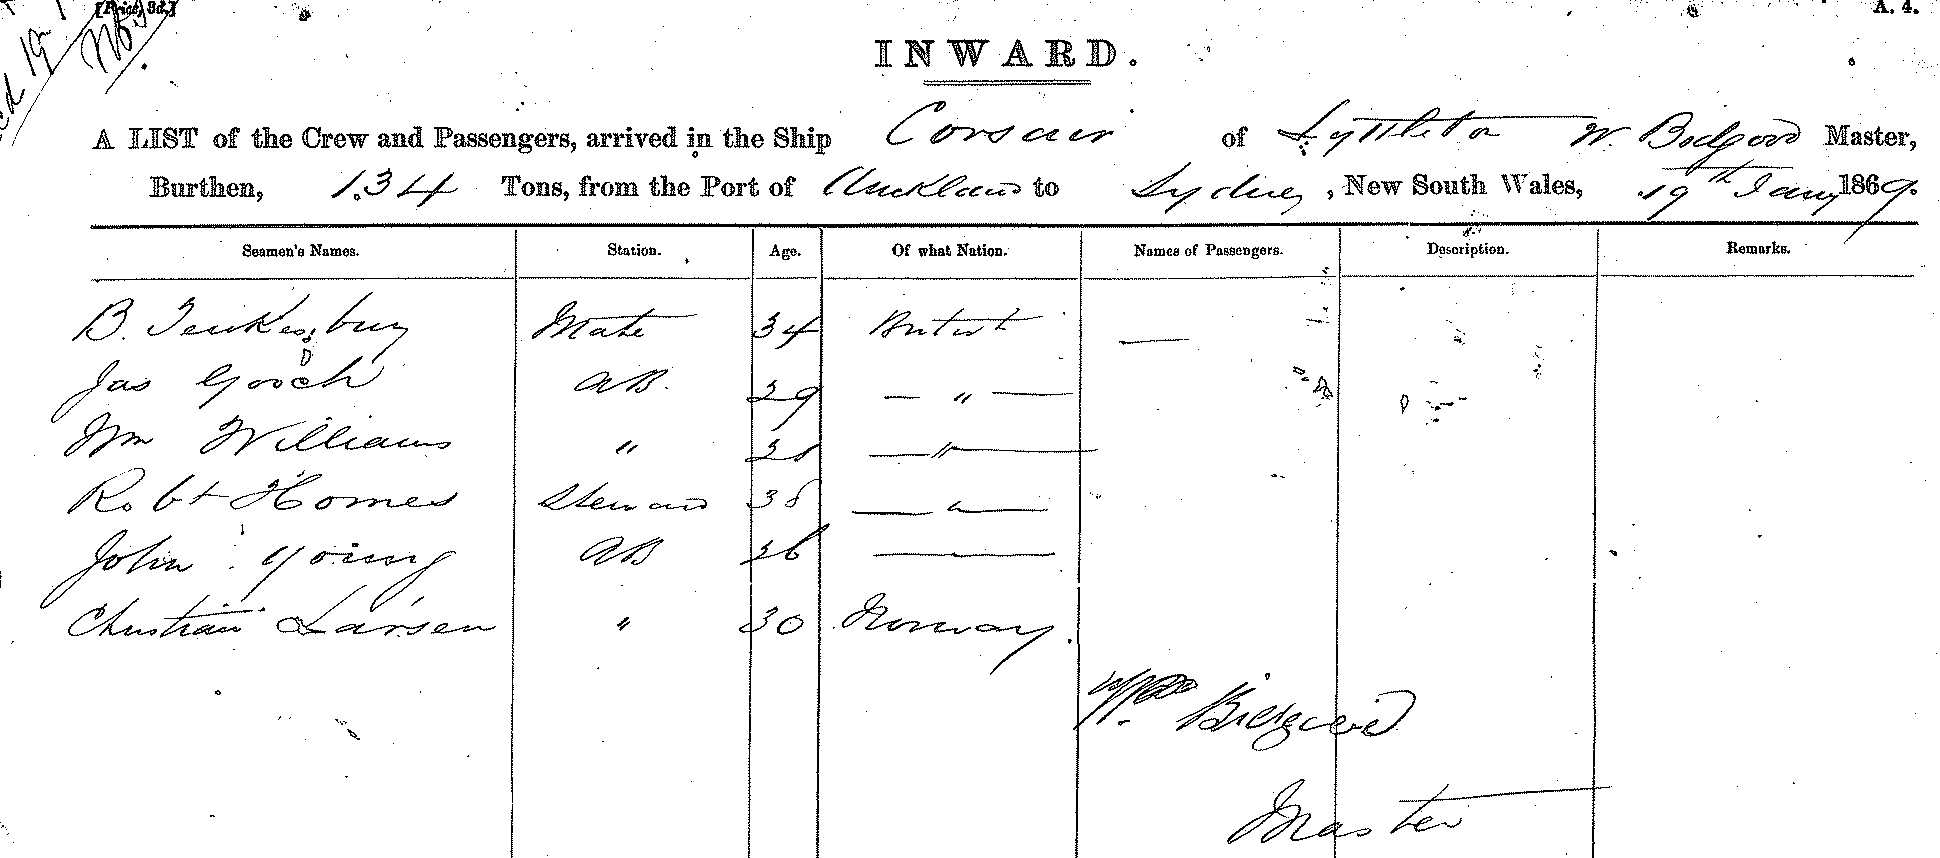 [Price, 3d.] A. 4.
INWARD.
A LIST of the Crew and Passengers, arrived in the Ship Corsair of Lyttleton W. Bidgood Master,
Burthen, 134 Tons, from the Port of Auckland to Sydney, New South Wales, 19th Jany 1869.
Seamen's Names. Station. Age. Of what Nation. Names of Passengers. Description. Remarks.
B. Teukesbury Mate 34 British —
Jas Gooch AB. 29 — " —
Wm Williams " — " —
Robt Homes Steward 38 — " —
John Young AB 26 —
Christian Larsen " 30 Norway.
Bidgood
Master